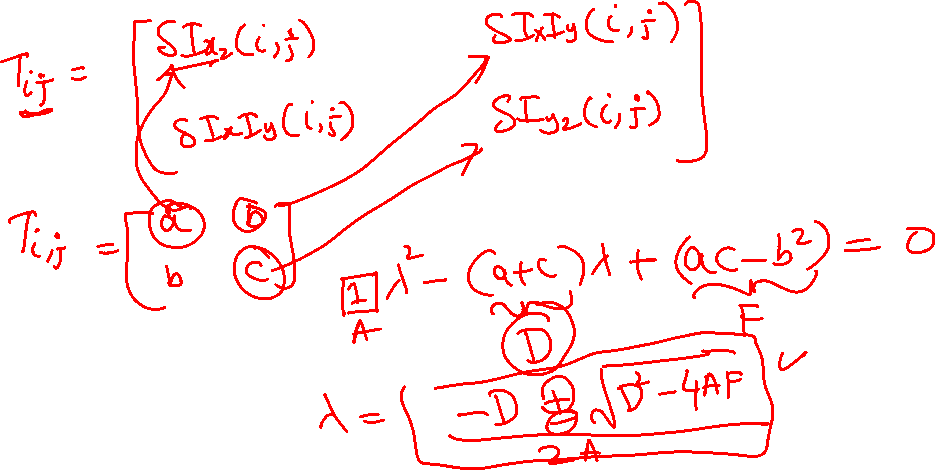 T_{ij} = [ SI_{x2}(i,j) SI_xI_y(i,j)
SI_xI_y(i,j) SI_{y2}(i,j) ]
T_{i,j} = [ a b
b c ]
1 λ² - (a+c)λ + (ac-b²) = 0
A D F
λ = -D ± √(D²-4AF) ✓
2A